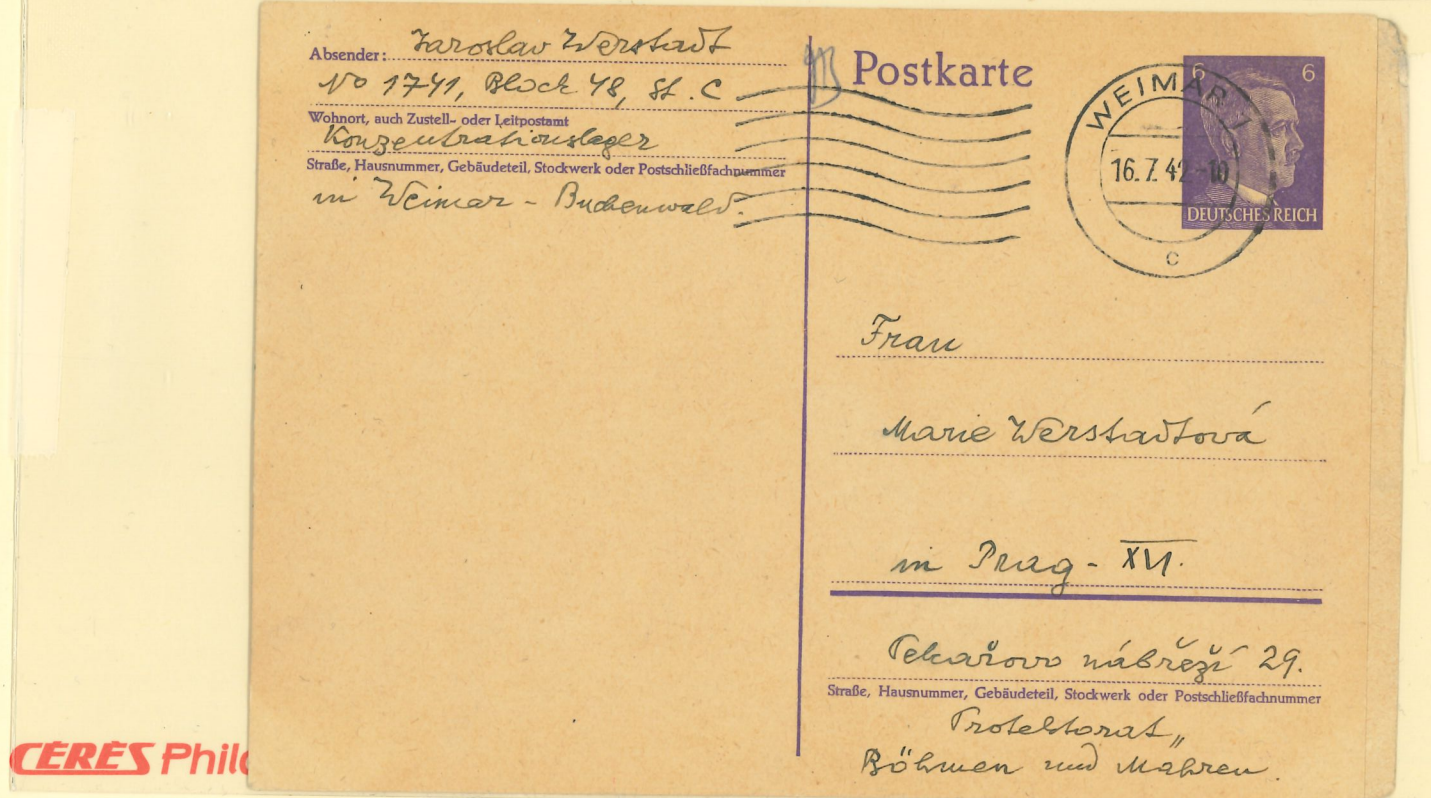 Absender: Jaroslav Werstadt
No 1741, Block 48, St. C
Wohnort, auch Zustell- oder Leitpostamt
Konzentrationslager
Straße, Hausnummer, Gebäudeteil, Stockwerk oder Postschließfachnummer
in Weimar - Buchenwald.
Postkarte
6 6
DEUTSCHES REICH
WEIMAR 1
16.7.42-10
c
Frau
Marie Werstadtová
in Prag - XVI.
Pekařovo nábřeží 29.
Straße, Hausnummer, Gebäudeteil, Stockwerk oder Postschließfachnummer
Protektorat „
Böhmen und Mähren
CÉRÈS Phil